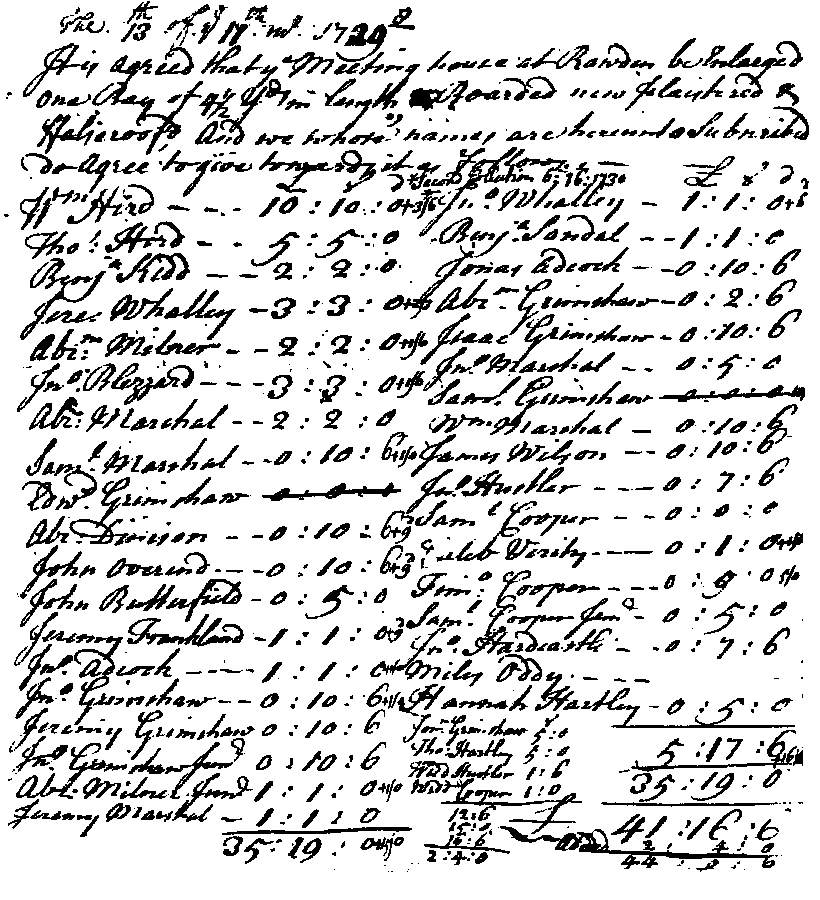 The 13th of ye 11th mo. 1729
It is agreed that ye Meeting house at Rawden be Enlarged
one Bay of 4½ Yds in length Boarded new plaistered &
And we whose names are hereunto Subscribed
do agree to give towards it as follows
Second Collection 6: 16: 1730 £ s d
Wm Hird - - - 10 : 10 : 0
Tho: Hird - - 5 : 5 : 0
Benja Kidd - - 2 : 2 : 0
Jere: Whalley - 3 : 3 : 0
Abrm Milner - - 2 : 2 : 0
Jno Blizzard - - - 3 : 3 : 0
Abr: Marshal - - 2 : 2 : 0
Saml Marshal - - 0 : 10 : 6
Edwd Grimshaw 0 : 0 : 0
Abr: Denison - - 0 : 10 : 6
John Overend - - 0 : 10 : 6
John Butterfield - 0 : 5 : 0
Jeremy Frankland - 1 : 1 : 0
Jno Adcock - - - - 1 : 1 : 0
Jno Grimshaw - - 0 : 10 : 6
Jeremy Grimshaw 0 : 10 : 6
Jno Grimshaw Jund 0 : 10 : 6
Abr: Milner Jund 1 : 1 : 0
Jeremy Marshal - 1 : 1 : 0
35 : 19 : 0
Jno Whalley - 1 : 1 : 0
Benja Sandal - - 1 : 1 : 0
Jonas Adcock - - 0 : 10 : 6
Abrm Grimshaw - 0 : 2 : 6
Isaac Grimshaw - 0 : 10 : 6
Jno Marshal - - 0 : 5 : 0
Saml Grimshaw 0 : 0 : 0
Wm Marshal - 0 : 10 : 6
James Wilson - - 0 : 10 : 6
Jno Hustler - - - 0 : 7 : 6
Saml Cooper - - 0 : 0 : 0
Caleb Verity - - - 0 : 1 : 0
Timo Cooper - - - 0 : 9 : 0
Saml Cooper Jund - 0 : 5 : 0
Jno Hardcastle - - 0 : 7 : 6
Miles Oddy - - - -
Hannah Hartley - 0 : 5 : 0
Jon Grimshaw 5 : 0
Tho: Hartley 5 : 0
Hustler 1 : 6
Cooper 1 : 0
12 : 6
15 : 0
16 : 6
2 : 4 : 0
5 : 17 : 6
35 : 19 : 0
£ 41 : 16 : 6
2 : 4 : 0
44 : 0 : 6